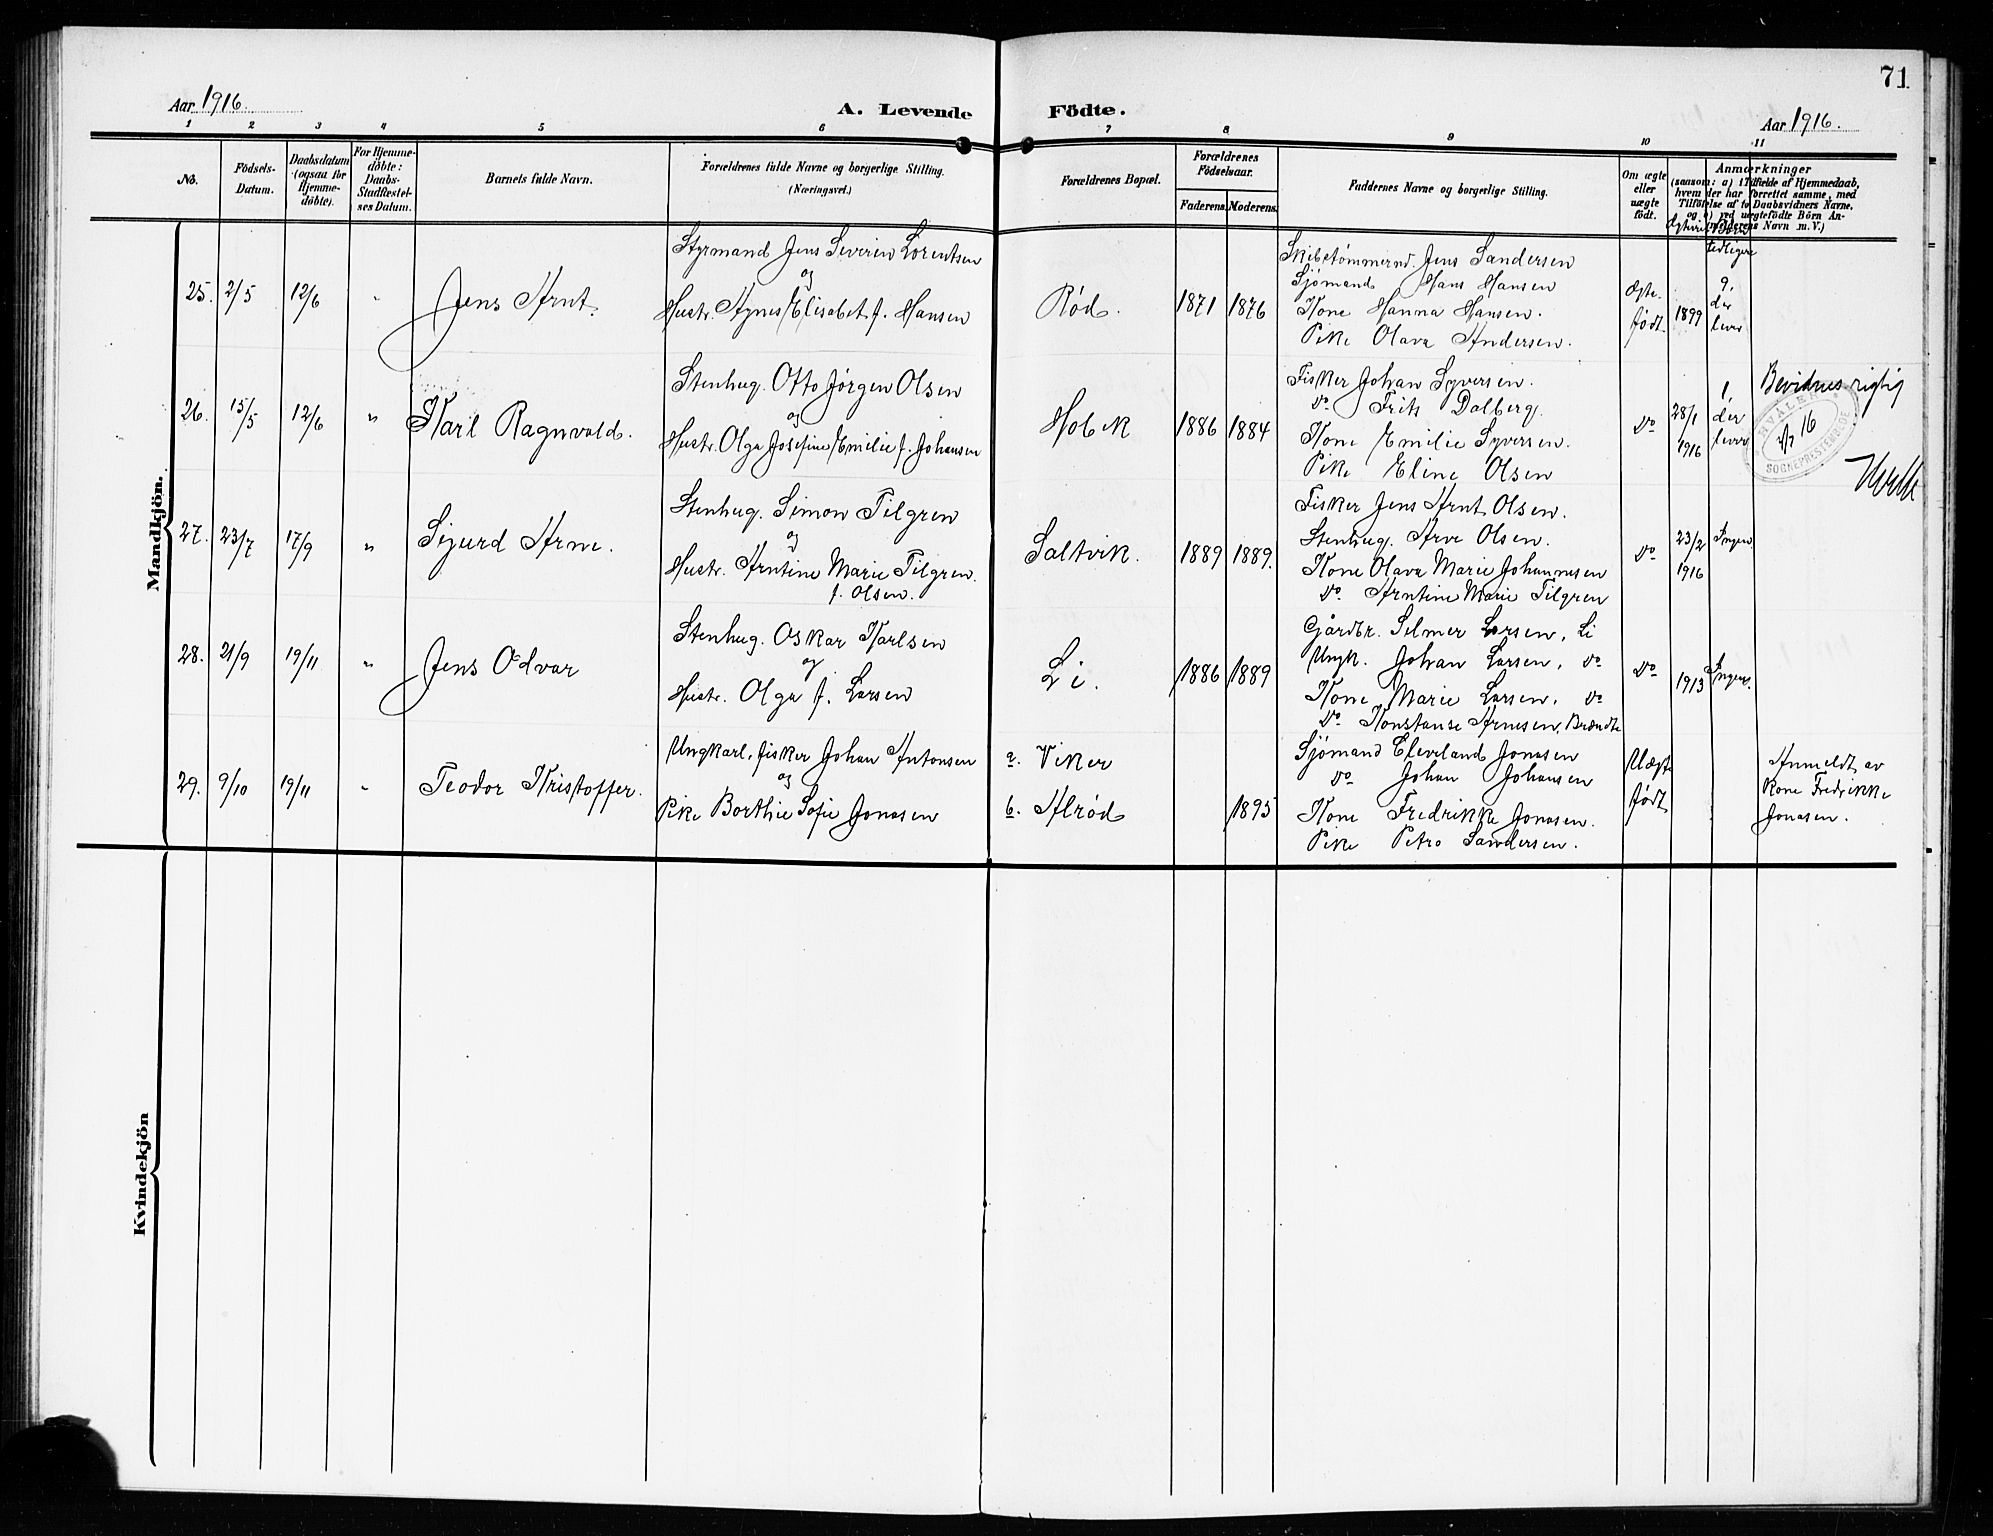 71
Aar 1916.
A. Levende Födte.
Aar 1916.
1 2 3 4 5 6 7 8 9 10 11
No.
Födsels-
Datum.
Daabsdatum
(ogsaa for
Hjemme-
döbte).
For Hjemme-
döbte:
Daabs-
Stadfæstel-
ses Datum.
Barnets fulde Navn.
Forældrenes fulde Navne og borgerlige Stilling.
(Næringsvei.)
Forældrenes Bopæl.
Forældrenes
Födselsaar.
Faderens. Moderens.
Faddernes Navne og borgerlige Stilling.
Om ægte
eller
uægte
födt.
Anmærkninger
(saasom: a) i Tilfælde af Hjemmedaab,
hvem der har forrettet samme, med
Tilföielse af to Daabsvidners Navne,
og b) ved uægtefödte Börn An-
melderens Navn m. V.)
Børn
tidligere
Mandkjön.
25. 2/5 12/6 " Jens Arnt.
Styrmand Jens Severin Lorentsen
og
Hustr. Agnes Elisabet f. Hansen
Rød. 1871 1876
Skibstømmermd. Jens Sandersen
Sjömand Hans Hansen
Kone Hanna Hansen.
Pike Olava Andersen.
Ægte-
födt.
1899
9,
der
lever
26. 15/5 12/6 " Karl Ragnvald.
Stenhug. Otto Jörgen Olsen
og
Hustr. Olga Josefine Emilie f. Johansen
Hobek 1886 1884
Fisker Johan Syversen.
do Frits Dalberg.
Kone Emilie Syversen.
Pike Eline Olsen
do
28/1
1916
1,
der
lever
Bevidnes rigtig
HVALER
16
SOGNEPRESTEMBEDE
27. 23/7 17/9 " Sigurd Arne.
Stenhug. Simon Tilgren
og
Hustr. Arntine Marie Tilgren
f. Olsen.
Saltvik. 1889 1889.
Fisker Jens Arnt Olsen.
Stenhug. Arve Olsen.
Kone Olava Marie Johannesen
do. Arntine Marie Tilgren
do
23/2
1916
Ingen
28. 21/9 19/11 " Jens Odvar
Stenhug. Oskar Karlsen
og
Hustr. Olga f. Larsen
Li. 1886 1889
Gårdbr. Selmer Larsen, Li
Ungk. Johan Larsen, do
Kone Marie Larsen, do
do. Konstanse Arnesen, Brændte
do
1913
Ingen.
29. 9/10 19/11 " Teodor Kristoffer.
Ungkarl, fisker Johan Antonsen
og
Pike Borthie Sofie Jonasen
a. Viker
b. Alrød 1895
Sjömand Cleveland Jonasen
do Johan Johansen
Kone Fredrikke Jonasen.
Pike Petra Sandersen.
Uægte
födt
Anmeldt av
Kone Fredrikke
Jonasen.
Kvindekjön